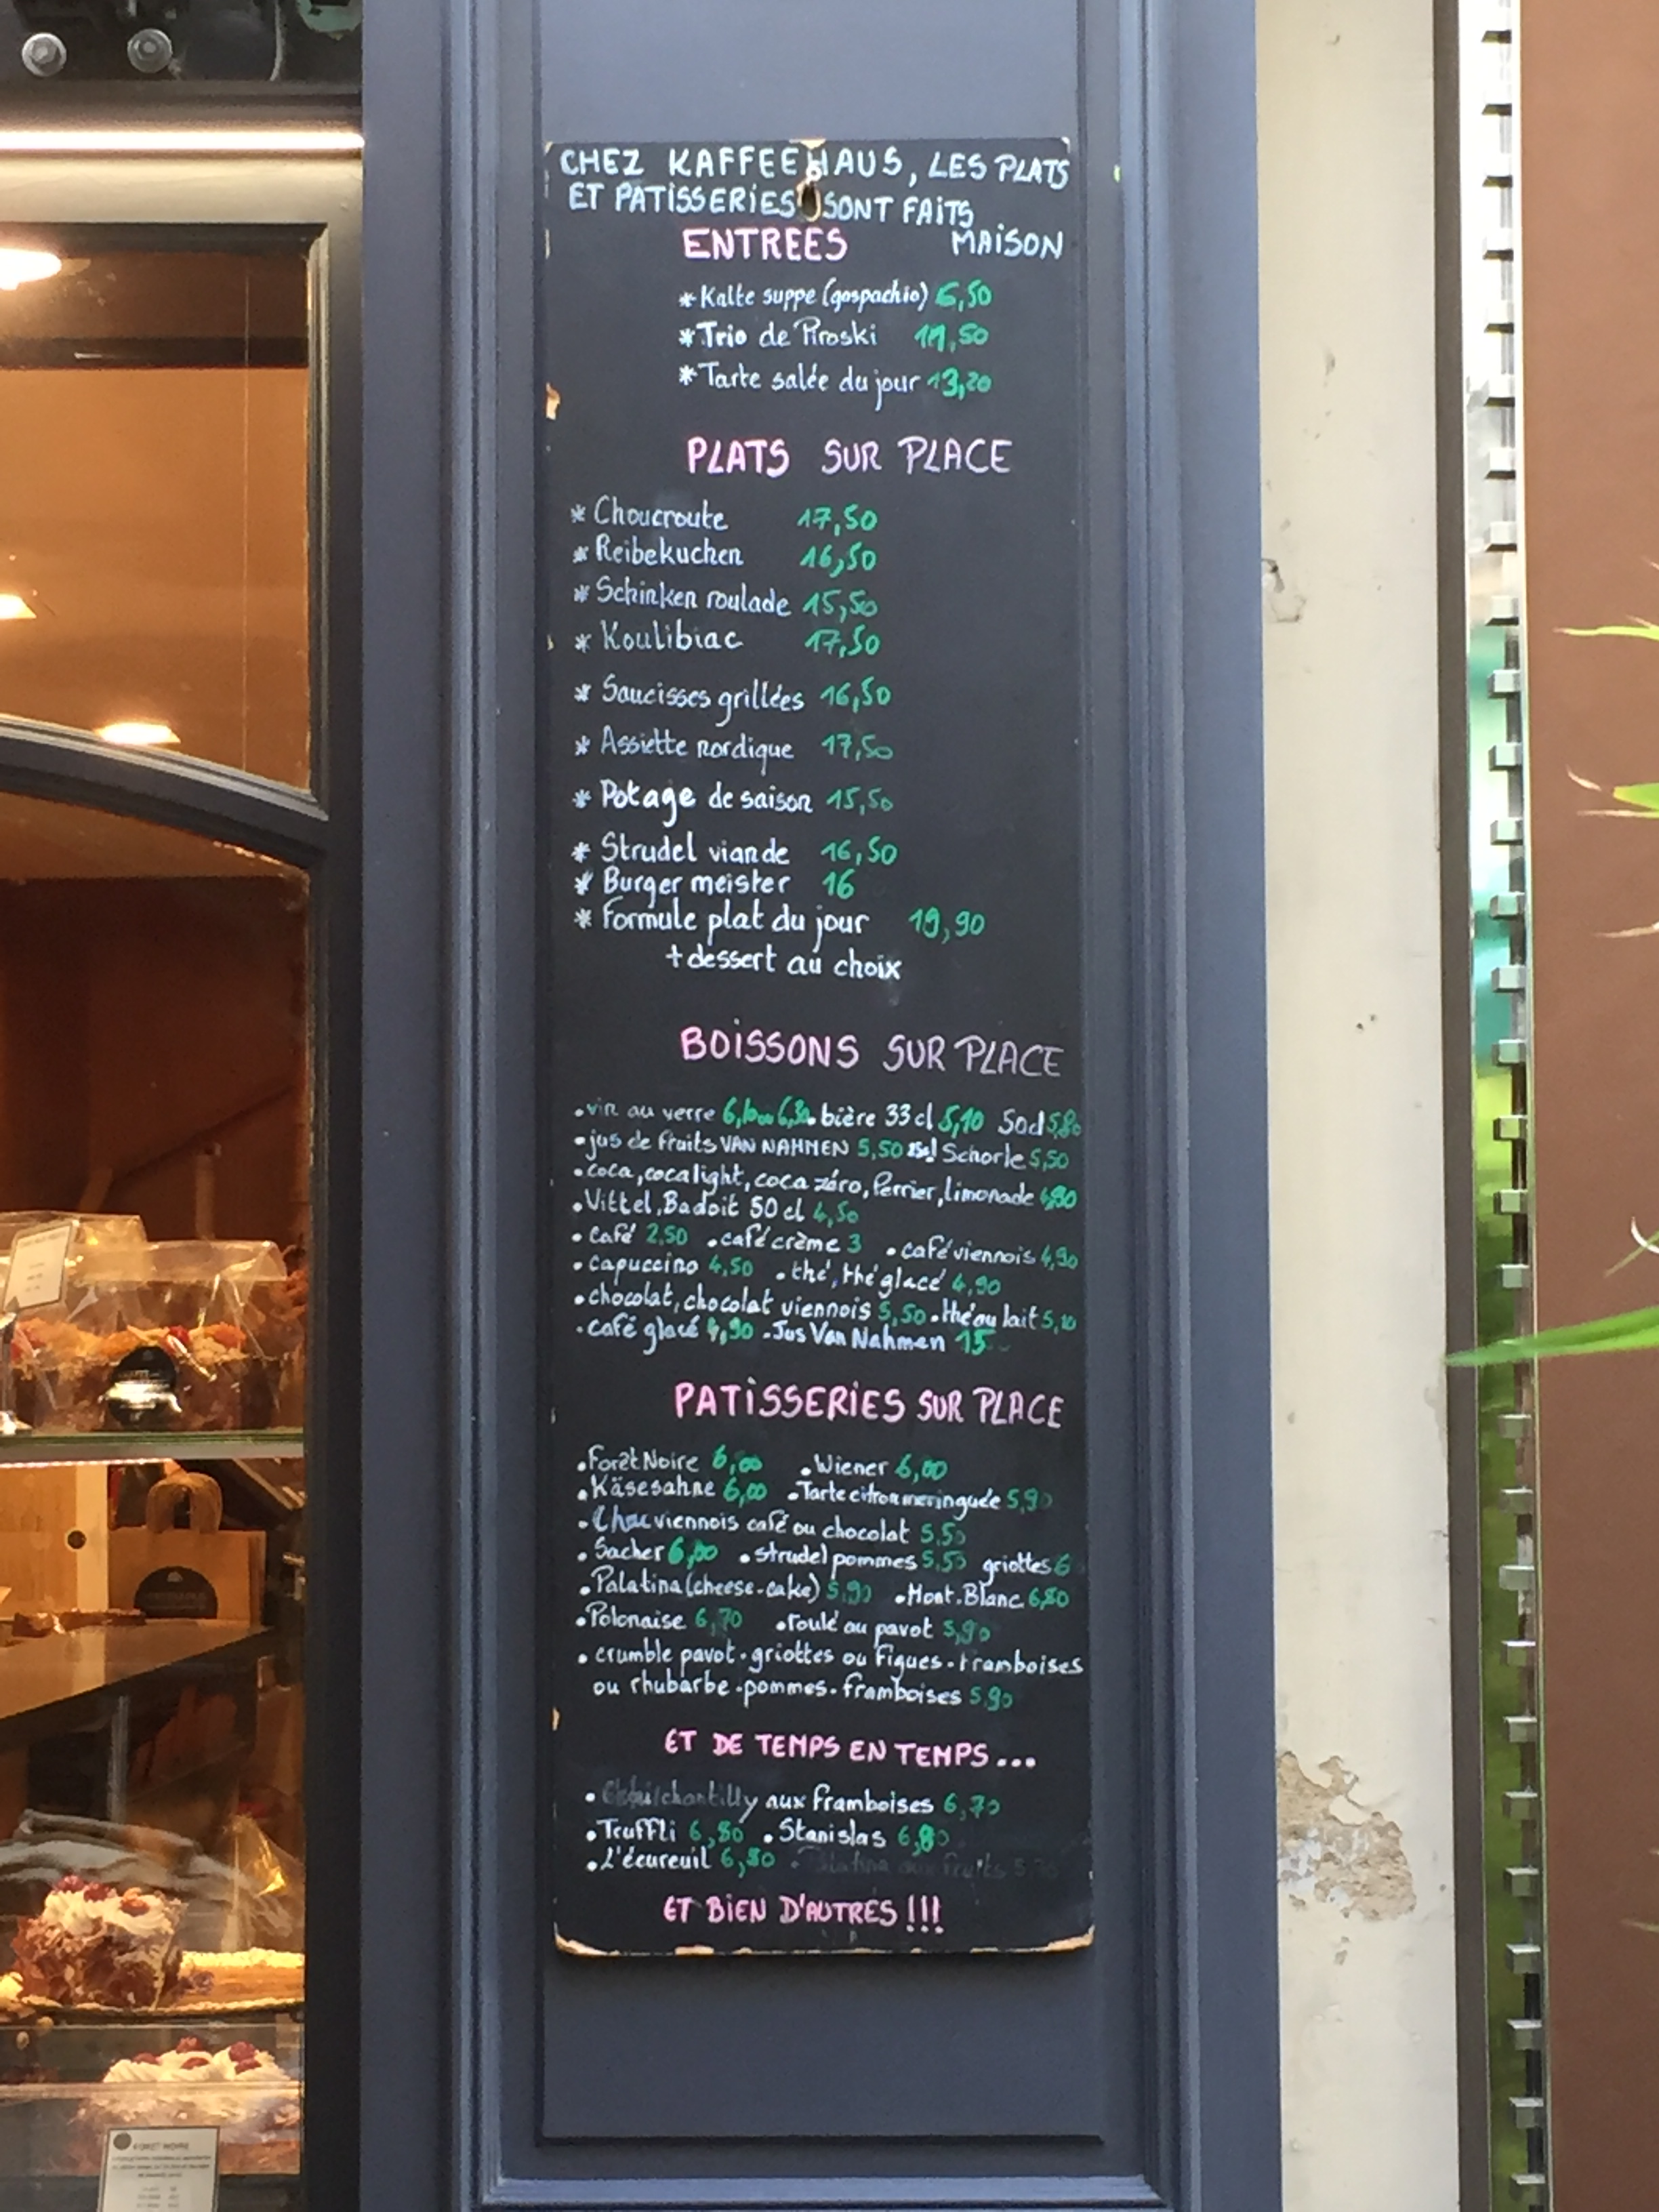 CHEZ KAFFEEHAUS, LES PLATS
ET PATISSERIES SONT FAITS
MAISON
ENTREES
* Kalte suppe (gaspachio) 6,50
* Trio de Piroski 11,50
* Tarte salée du jour 13,20
PLATS SUR PLACE
* Choucroute 17,50
* Reibekuchen 16,50
* Schinken roulade 15,50
* Koulibiac 17,50
* Saucisses grillées 16,50
* Assiette nordique 17,50
* Potage de saison 15,50
* Strudel viande 16,50
* Burger meister 16
* Formule plat du jour 19,90
+ dessert au choix
BOISSONS SUR PLACE
• vin au verre • bière 33 cl 5,10 50cl 5,80
• jus de fruits VAN NAHMEN 5,50 25cl Schorle 5,50
• coca, coca light, coca zéro, Perrier, limonade 4,90
• Vittel, Badoit 50 cl 4,50
• Café 2,50 • café crème 3 • café viennois 4,90
• capuccino 4,50 • thé, thé glacé 4,90
• chocolat, chocolat viennois 5,50 • thé au lait 5,10
• café glacé 4,90 • Jus Van Nahmen 15
PATiSSERiES SUR PLACE
• Forêt Noire 6,00 • Wiener 6,00
• Käsesahne 6,00 • Tarte citron meringuée 5,90
• Chou viennois café ou chocolat 5,50
• Sacher 6,00 • strudel pommes 5,50 griottes 6
• Palatina (cheese-cake) 5,90 • Mont-Blanc 6,80
• Polonaise 6,70 • roulé au pavot 5,90
• crumble pavot-griottes ou figues-framboises
ou rhubarbe-pommes-framboises 5,90
ET DE TEMPS EN TEMPS...
• chantilly aux framboises 6,70
• Truffli 6,80 • Stanislas 6,80
• L'écureuil 6,80 • Palatina aux fruits
ET BIEN D'AUTRES !!!
FORET NOIRE